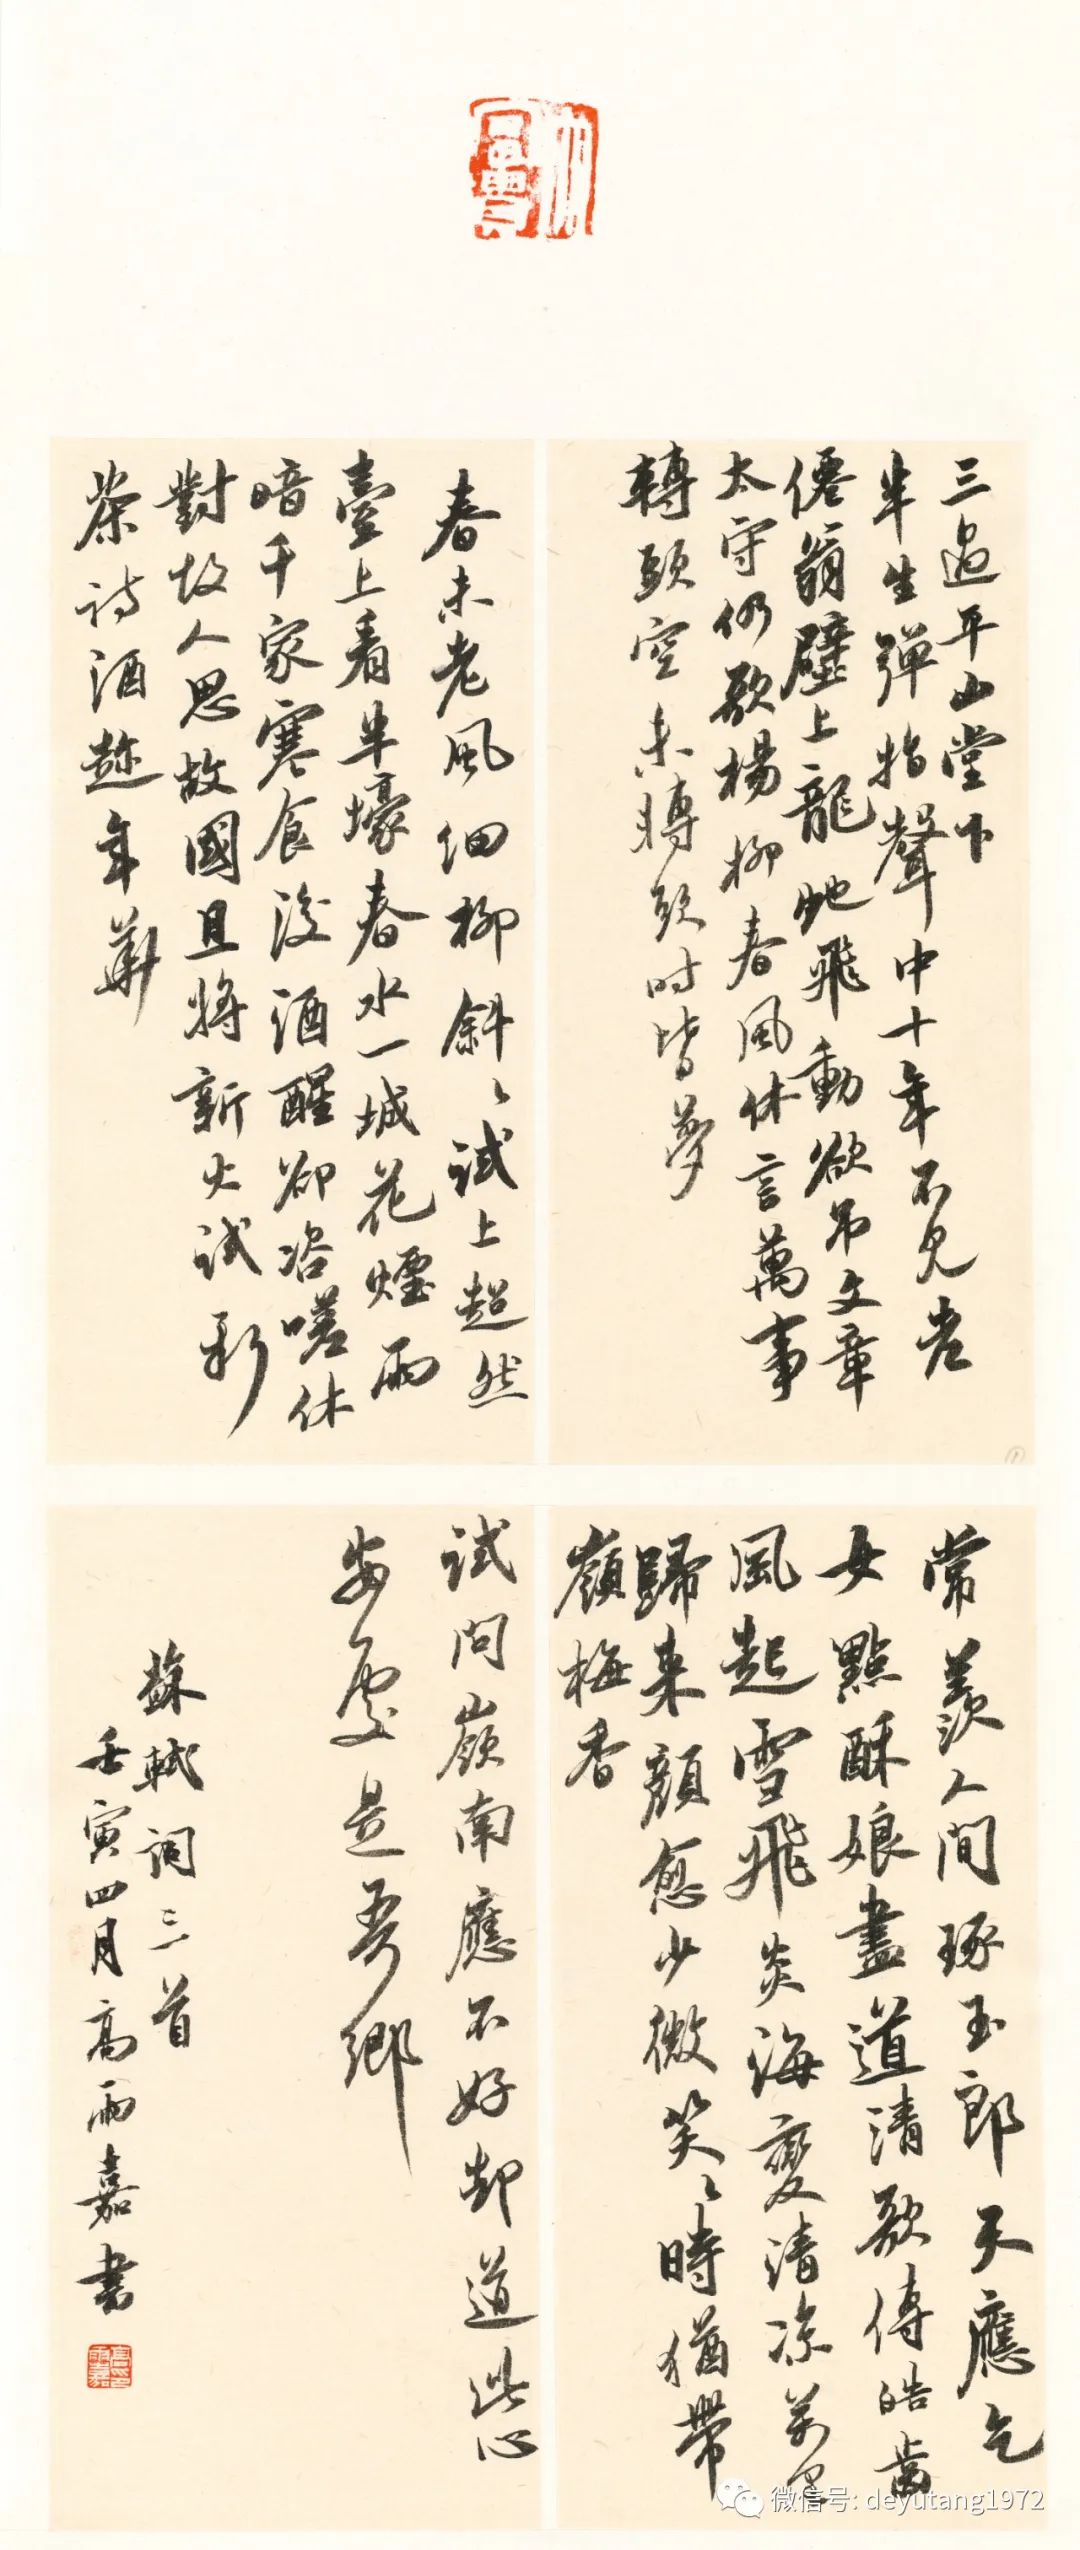 三過平山堂下
半生彈指聲中十年不見老
僊翁壁上龍蛇飛動欲吊文章
太守仍歌楊柳春風休言萬事
轉頭空未轉頭時皆夢
春未老風細柳斜〻試上超然
臺上看半壕春水一城花煙雨
暗千家寒食後酒醒卻咨嗟休
對故人思故國且將新火試新
茶詩酒趁年華
常羨人間琢玉郎天應乞
女點酥娘盡道清歌傳皓齒
風起雪飛炎海變清涼萬里
歸來顏愈少微笑〻時猶帶
嶺梅香
試問嶺南應不好却道此心
安處是吾鄉
蘇軾詞三首
壬寅四月高雨嘉書
微信号: deyutang1972